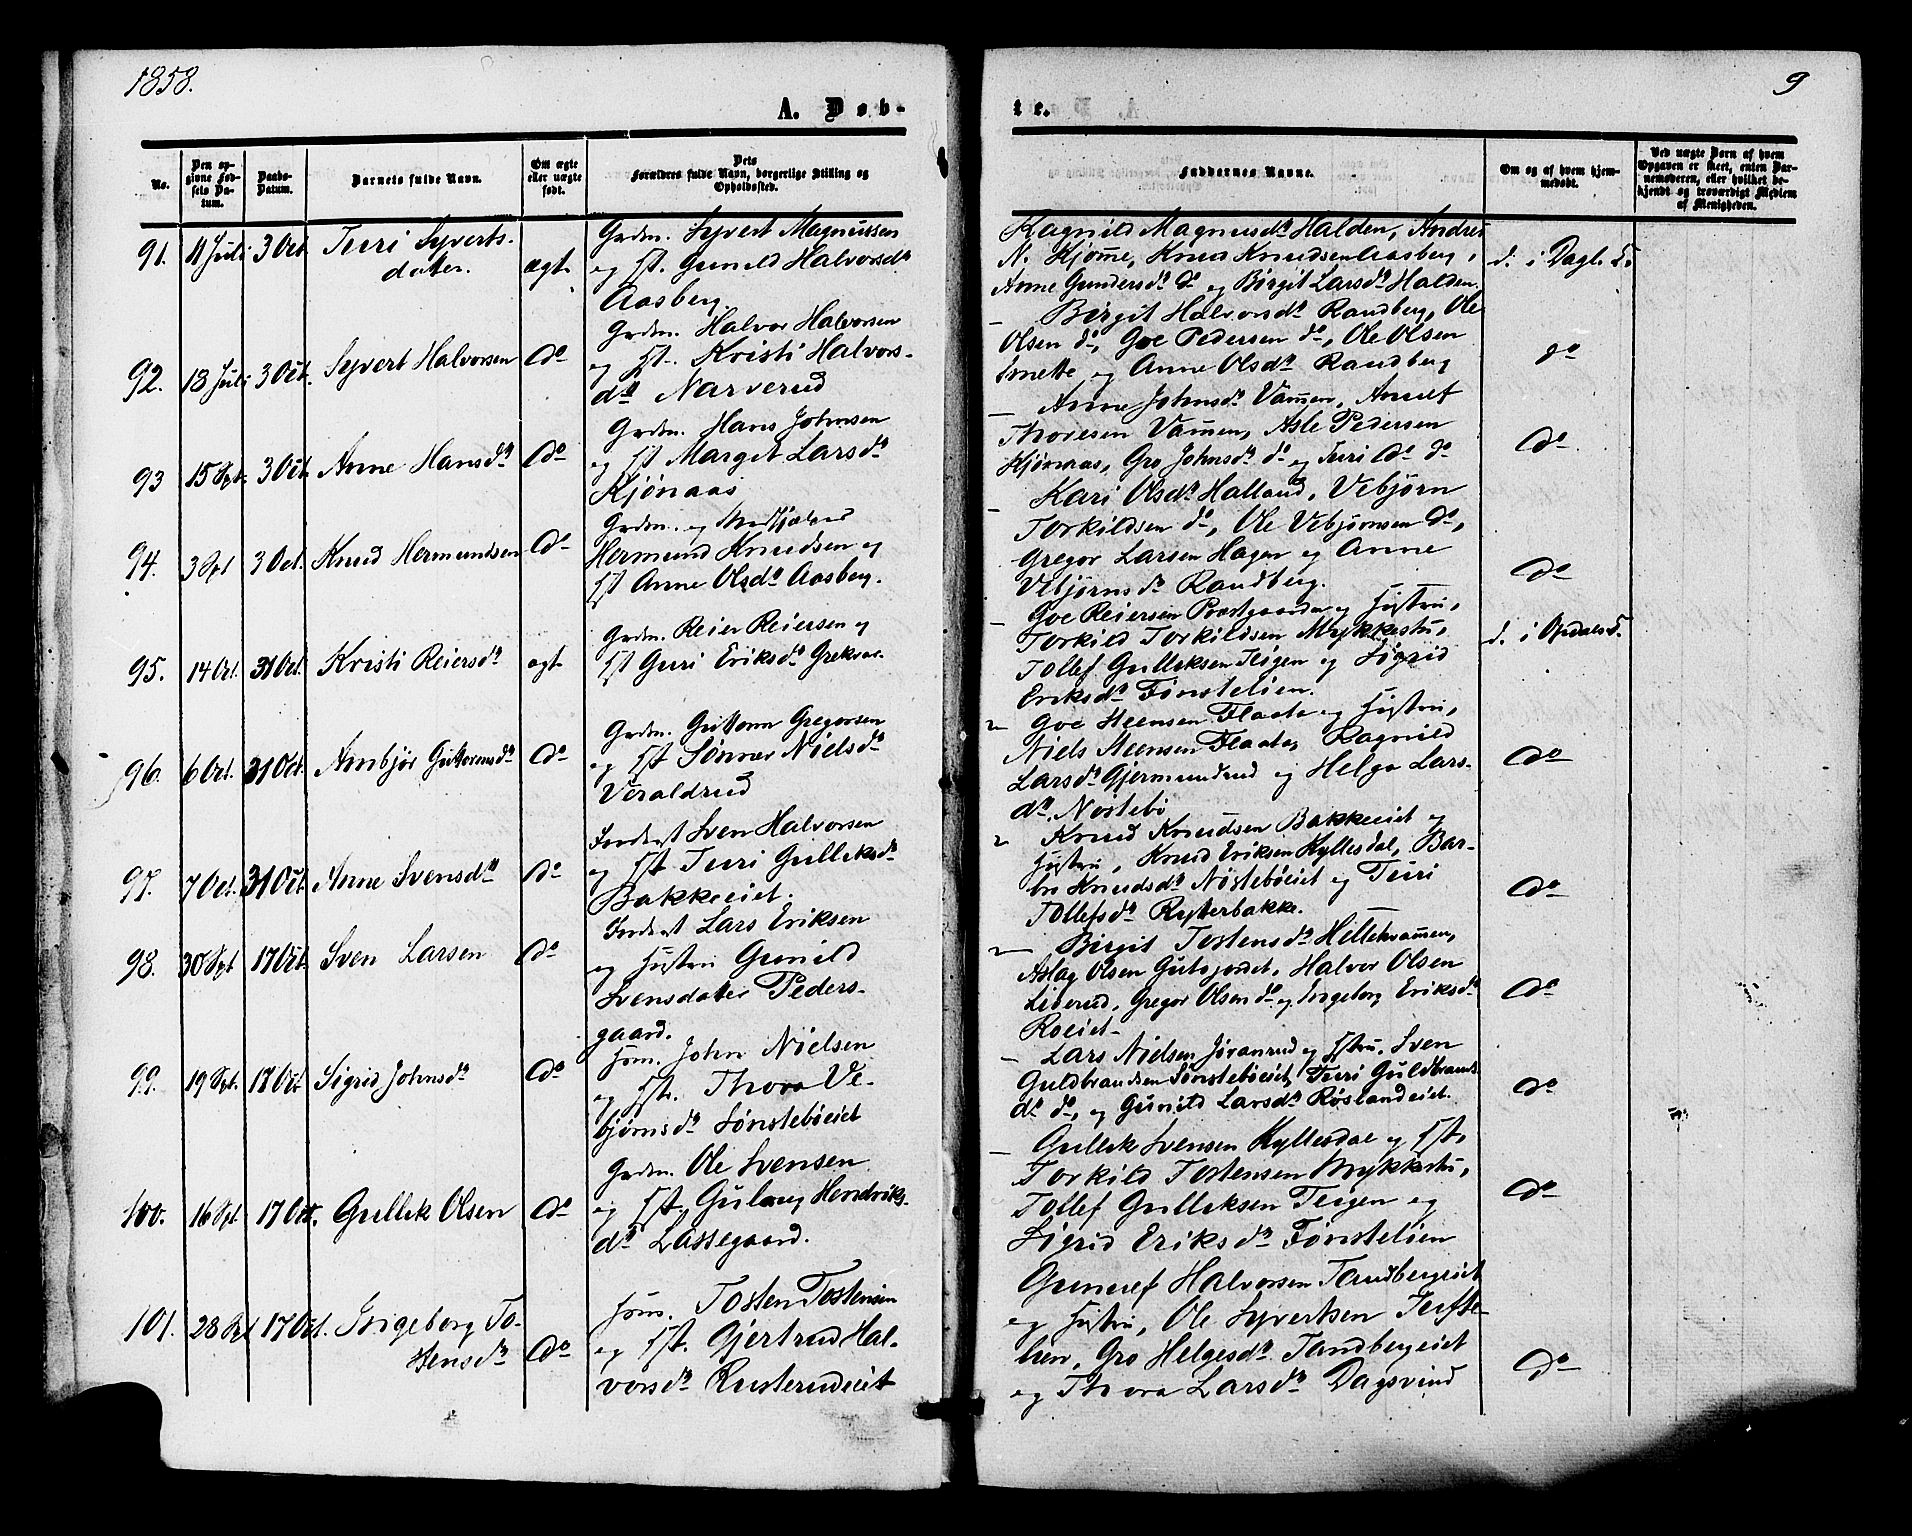 1858.
9
A. Døb-
te.
No.
Den op-
givne Fød-
sels Da-
tum.
Daabs-
Datum.
Barnets fulde Navn.
Om ægte
eller uægte
født.
Dets
Forældres fulde Navn, borgerlige Stilling og
Opholdssted.
Faddernes Navne.
Om og af hvem hjem-
medøbt.
Ved uægte Børn af hvem
Opgaven er skeet, enten Bar-
nemoderen, eller hvilket be-
kjendt og troværdigt Medlem
af Menigheden.
91. 11 Juli 3 Oct. Turi Syverts-
datter.
ægt.
Grdm. Syvert Magnussen
og Hst. Gunild Halvorsdr
Aasberg.
Ragnild Magnusdr Halden, Andres
N. Kjøme, Knud Knudsen Aasberg,
Anne Gundersdr do og Birgit Larsdr Halden.
d. i Dagl. K.
92. 18 Juli 3 Oct. Syvert Halvorsen do
Grdm. Halvor Halvorsen
og Hst. Kristi Halvors-
dr Narverud
Birgit Halvorsdr Randberg, Ole
Olsen do, Goe Pedersen do, Ole Olsen
Smette og Anne Olsdr Randberg
do
93 15 Spt. 3 Oct. Anne Hansdr do
Grdm. Hans Johnsen
og Hst Margit Larsdr
Kjønaas
Anne Johnsdr Vammen,
Thoresen Vammen, Asle Pedersen
Kjønaas, Gro Johnsdr do og Turi do do
do
94. 3 Spt 3 Oct. Knud Hermundsen do
Grdm. og
Hermund Knudsen og
Hst Anne Olsdr Aasberg.
Kari Olsdr Halland, Vebjørn
Torkildsen do, Ole Vebjørnsen do,
Gregor Larsen Hagen og Anne
Vebjørnsdr Randberg.
do
95. 14 Oct. 31 Oct. Kristi Reiersdr ægt.
Grdm. Reier Reiersen og
Hst Guri Eriksdr
Goe Reiersen Prestgaarden og Hustru,
Torkild Torkildsen Mykkestu,
Tollef Gulleksen Teigen og Sigrid
Eriksdr Fønsteliен.
d. i Opdals K.
96. 6 Oct. 31 Oct. Ambjør Guttormsdr do
Grdm. Guttorm Gregorsen
og Hst Sønnev Nielsdr
Veraldrud
Goe Steensen Flaata og Hustru,
Niels Steensen Flaata, Ragnild
Larsdr Gjermundrud og Helga Lars-
dr Nørstebø
do
97. 7 Oct. 31 Oct. Anne Svensdr do
Sven Halvorsen
og Hst. Turi Gulleksdr
Bakkeeiet.
Knud Knudsen Bakkeeiet og
Hustru, Knud Eriksen Kyllesdal, Bar-
bro Knudsdr Nøstebøeiet og Turi
Tollefsdr Rysterbakke.
do
98. 30 Spt 17 Oct. Sven Larsen do
Lars Eriksen
og Hustru Gunild
Svensdatter Peders-
gaard.
Birgit Tostensdr Hellekvammen,
Aslag Olsen Gutujordet, Halvor Olsen
Liverud, Gregor Olsen do og Ingeborg Eriksdr
Roeiet
do
99. 19 Spt. 17 Oct Sigrid Johnsdr do
Hsm. John Nielsen
og Hst. Thora Ve-
bjørnsdr Sønstebøeiet
Lars Nielsen Jøranrud og Hstru, Sven
Guldbrandsen Sønstebøeiet, Turi Guldbrands-
dr do, og Gunild Larsdr Røslandeiet.
do
100. 16 Spt. 17 Oct. Gullek Olsen do
Grdm. Ole Svensen
og Hst. Gulaug Hendriks-
dr Lassegaard.
Gullek Svensen Kyllesdal og Hst,
Torkild Tostensen Mykkestu,
Tollef Gulleksen Teigen og
Sigrid Eriksdr Fønsteliен
do
101. 28 Spt 17 Oct. Ingeborg To-
stensdr do
Hsm. Tosten Tostensen
og Hst. Gjertrud Hal-
vorsdr Rusterudeiet
Gunulf Halvorsen Tandbergeiet
og Hustru, Ole Syvertsen Tufte-
lien, Gro Helgesdr. Tandbergeiet
og Thora Larsdr Dagsvind
do